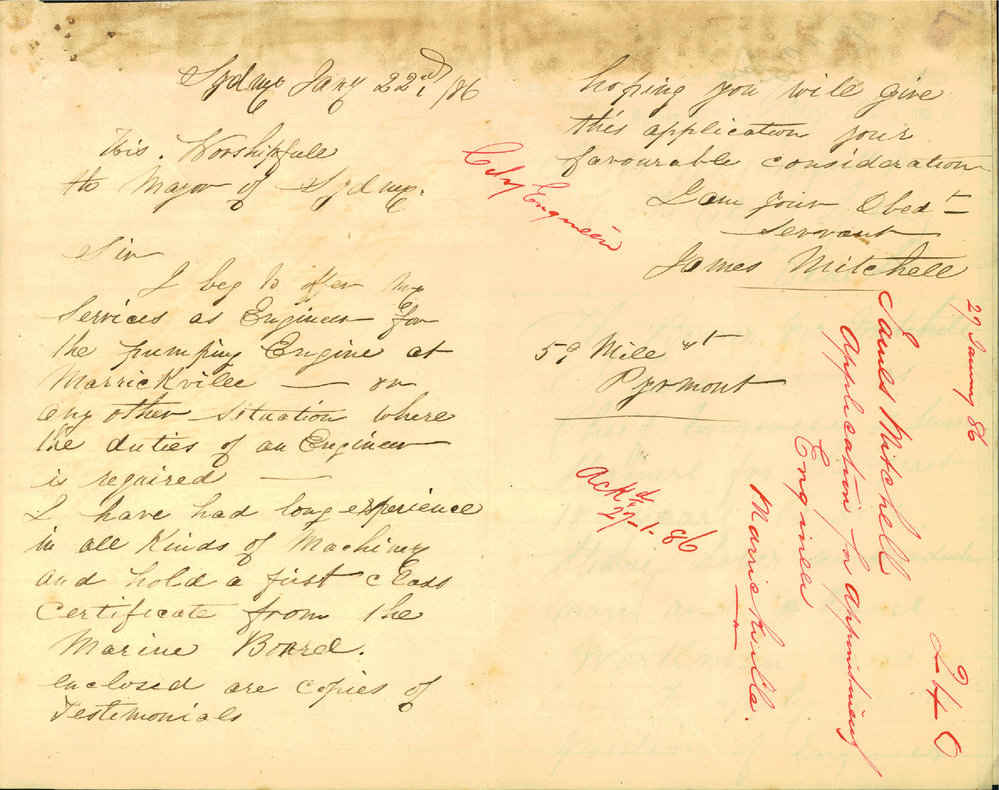 Sydney Jany 22nd, /86
His. Worshipfull
th Mayor of Sydney.
Sir
I beg to offer my
Services as Engineer for
the pumping Engine at
Marrickville — or
any other situation where
the duties of an Engineer
is required —
I have had long experience
in all Kinds of Machinery
and hold a first class
Certificate from the
Marine Board.
enclosed are copies of
Testimonials
hoping you will give
this application your
favourable consideration
I am your Obedt
Servant
James Mitchell
59 Mile St
Pyrmont
City Engineer
Ackd
27-1-86
29 January 86
James Mitchell
Application for appointment
Engineer
Marrickville.